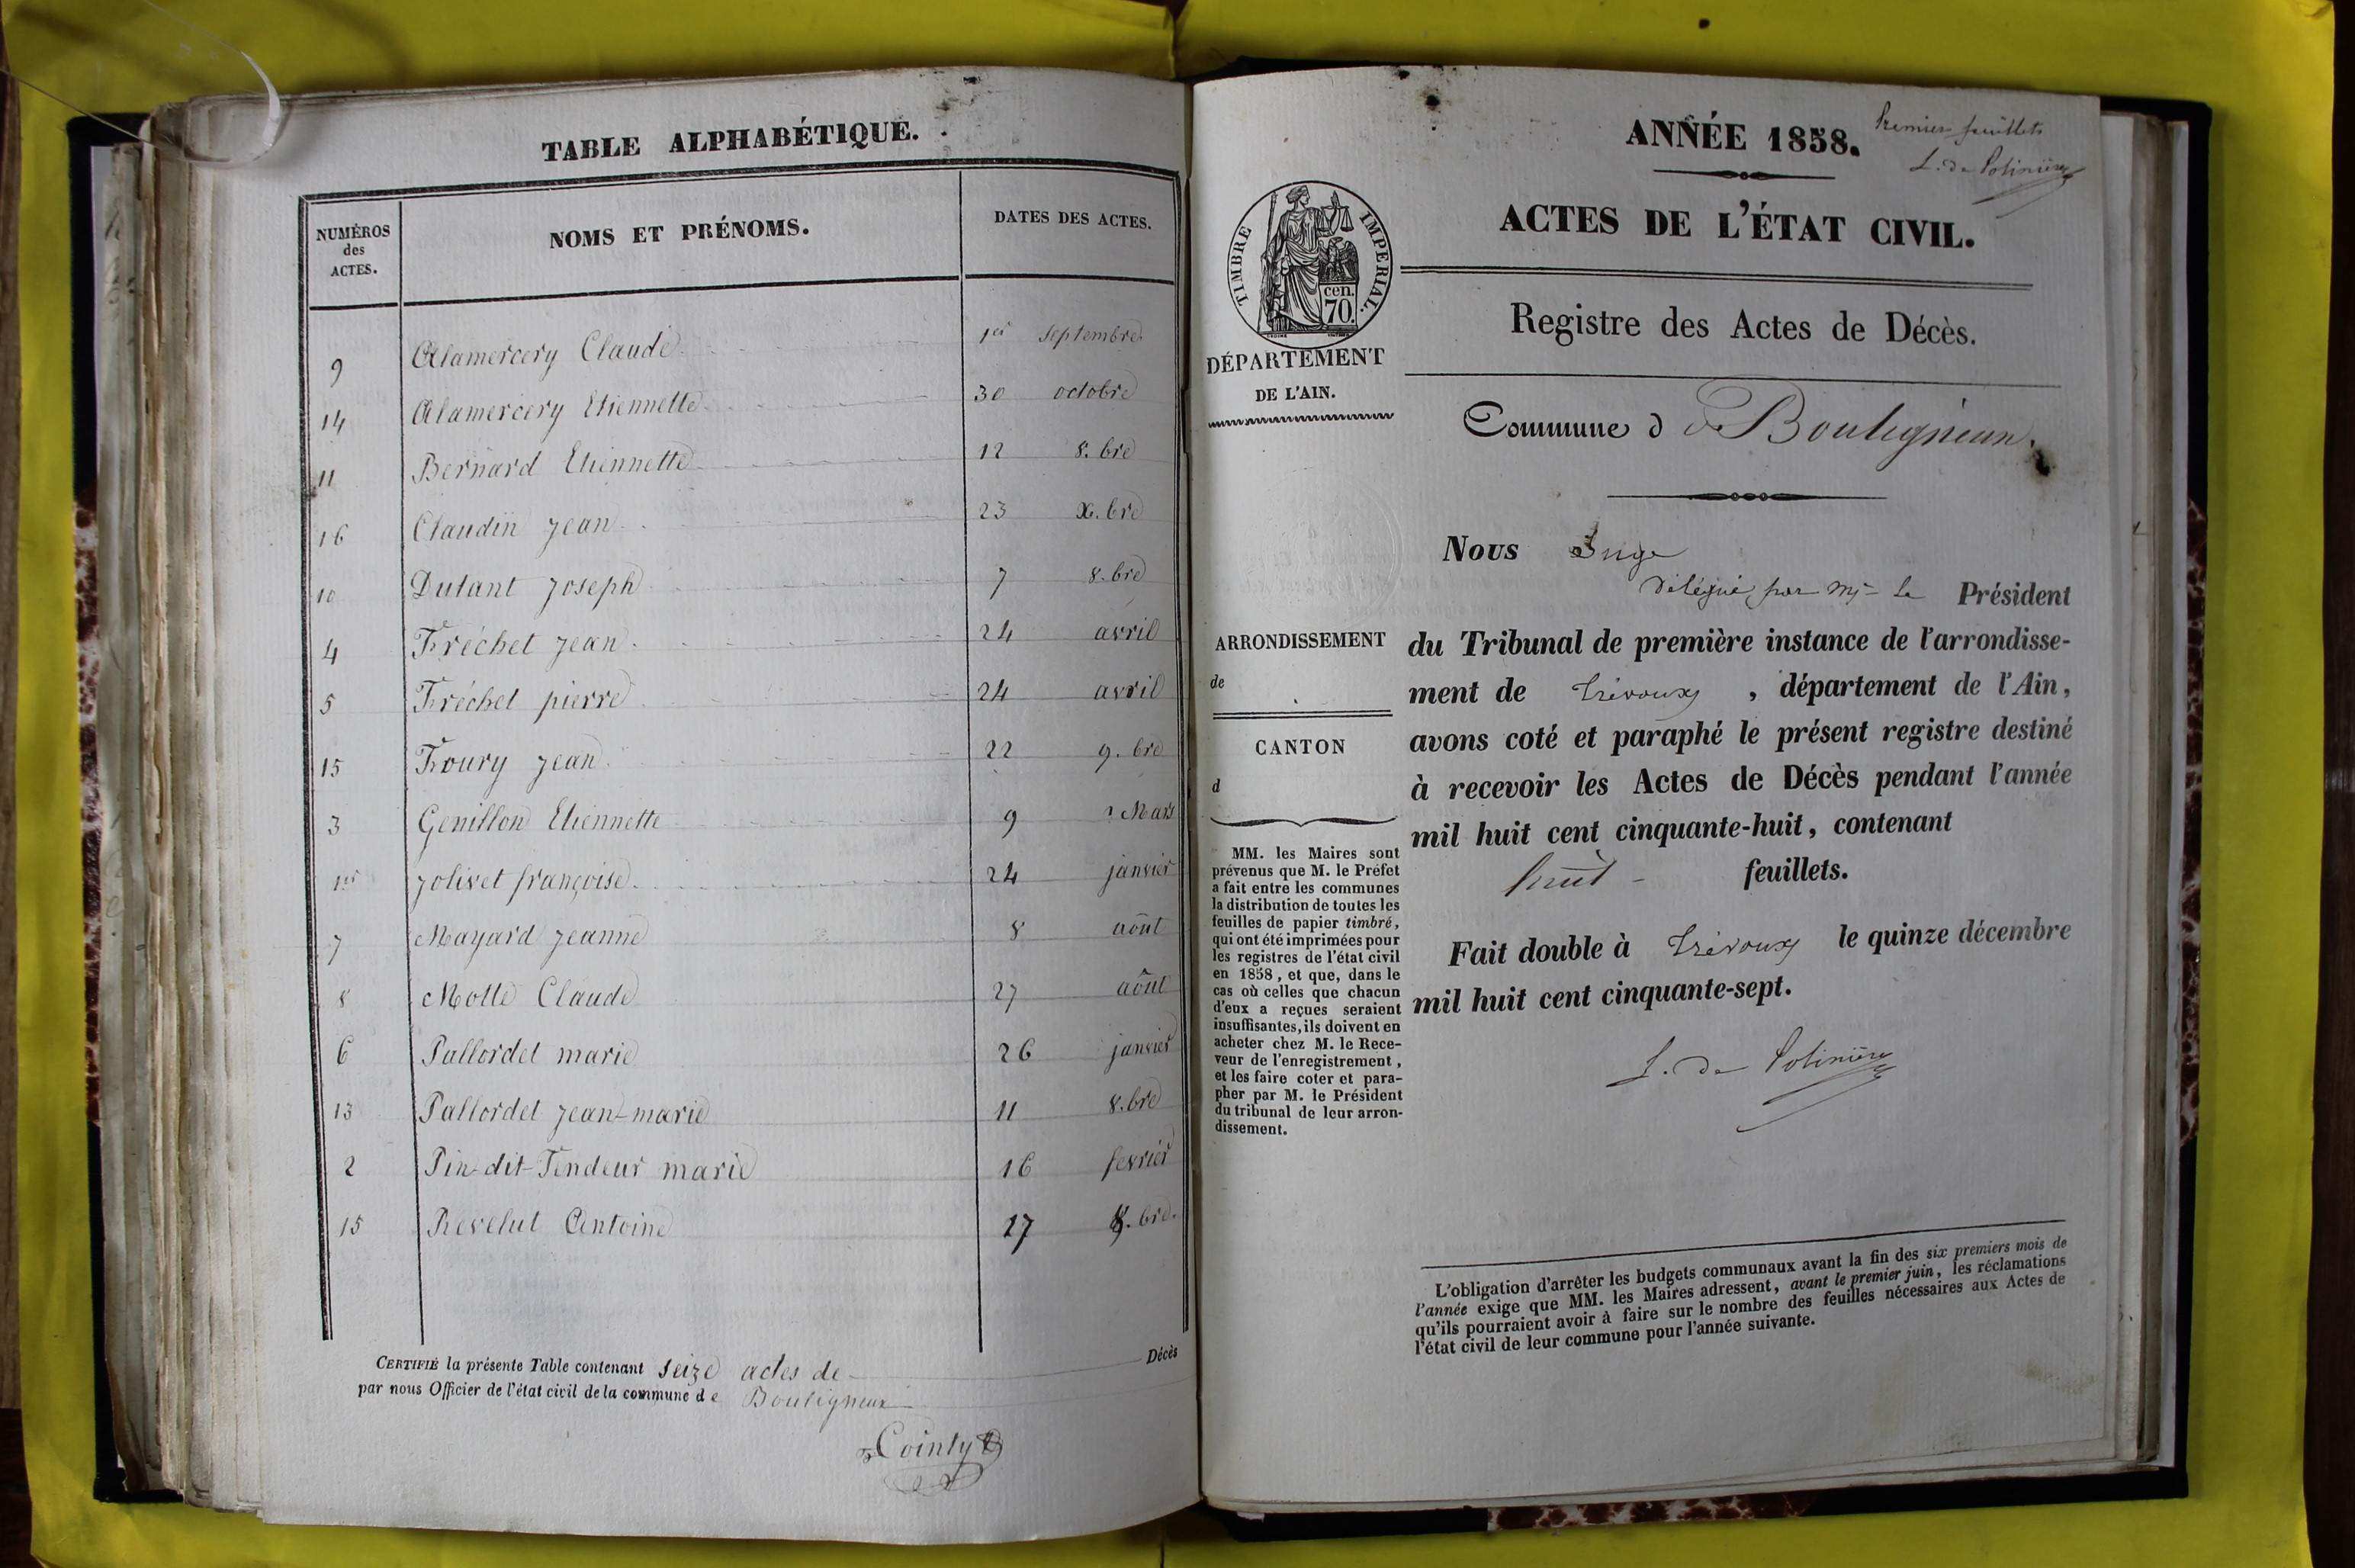 TABLE ALPHABÉTIQUE.
NUMÉROS
des
ACTES.
NOMS ET PRÉNOMS.
DATES DES ACTES.
9 Alamercery Claude 1er septembre
14 Alamercery Etiennette 30 octobre
11 Bernard Etiennette 12 8.bre
16 Claudin jean 23 X.bre
10 Dutant joseph 7 8.bre
4 Fréchet jean 24 avril
5 Fréchet pierre 24 avril
15 Foury jean 22 9.bre
3 Genillon Etiennette 9 Mars
1er jolivet françoise 24 janvier
7 Mayard jeanne 8 août
8 Motte Claude 27 août
6 Pallordet marie 26 janvier
13 Pallordet jean-marie 11 8.bre
2 Pin-dit-Tendeur marie 16 fevrier
15 Revelut Antoine 27 8.bre.
CERTIFIÉ la présente Table contenant seize actes de Décès
par nous Officier de l'état civil de la commune de Bouligneux
Cointy
ANNÉE 1858.
Premier feuillets
L. de Polinière
ACTES DE L'ÉTAT CIVIL.
TIMBRE IMPERIAL.
cen.
70.
DÉPARTEMENT
DE L'AIN.
Registre des Actes de Décès.
Commune d de Bouligneux.
Nous Juge
délégué par Mr le Président
ARRONDISSEMENT
de
CANTON
d
du Tribunal de première instance de l'arrondisse-
ment de Trévoux, département de l'Ain,
avons coté et paraphé le présent registre destiné
à recevoir les Actes de Décès pendant l'année
mil huit cent cinquante-huit, contenant
huit feuillets.
Fait double à Trévoux le quinze décembre
mil huit cent cinquante-sept.
L. de Polinière
MM. les Maires sont
prévenus que M. le Préfet
a fait entre les communes
la distribution de toutes les
feuilles de papier timbré,
qui ont été imprimées pour
les registres de l'état civil
en 1858, et que, dans le
cas où celles que chacun
d'eux a reçues seraient
insuffisantes, ils doivent en
acheter chez M. le Rece-
veur de l'enregistrement,
et les faire coter et para-
pher par M. le Président
du tribunal de leur arron-
dissement.
L'obligation d'arrêter les budgets communaux avant la fin des six premiers mois de
l'année exige que MM. les Maires adressent, avant le premier juin, les réclamations
qu'ils pourraient avoir à faire sur le nombre des feuilles nécessaires aux Actes de
l'état civil de leur commune pour l'année suivante.